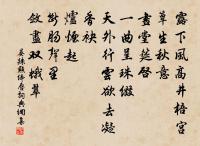 露下風高井梧宮
簟生秋意
畫堂筵啓
一曲呈珠綴
天外行雲欲去凝
香袂
爐煙起
斷腸聲里
斂盡雙蛾翠
晏殊點絳唇詞典網集